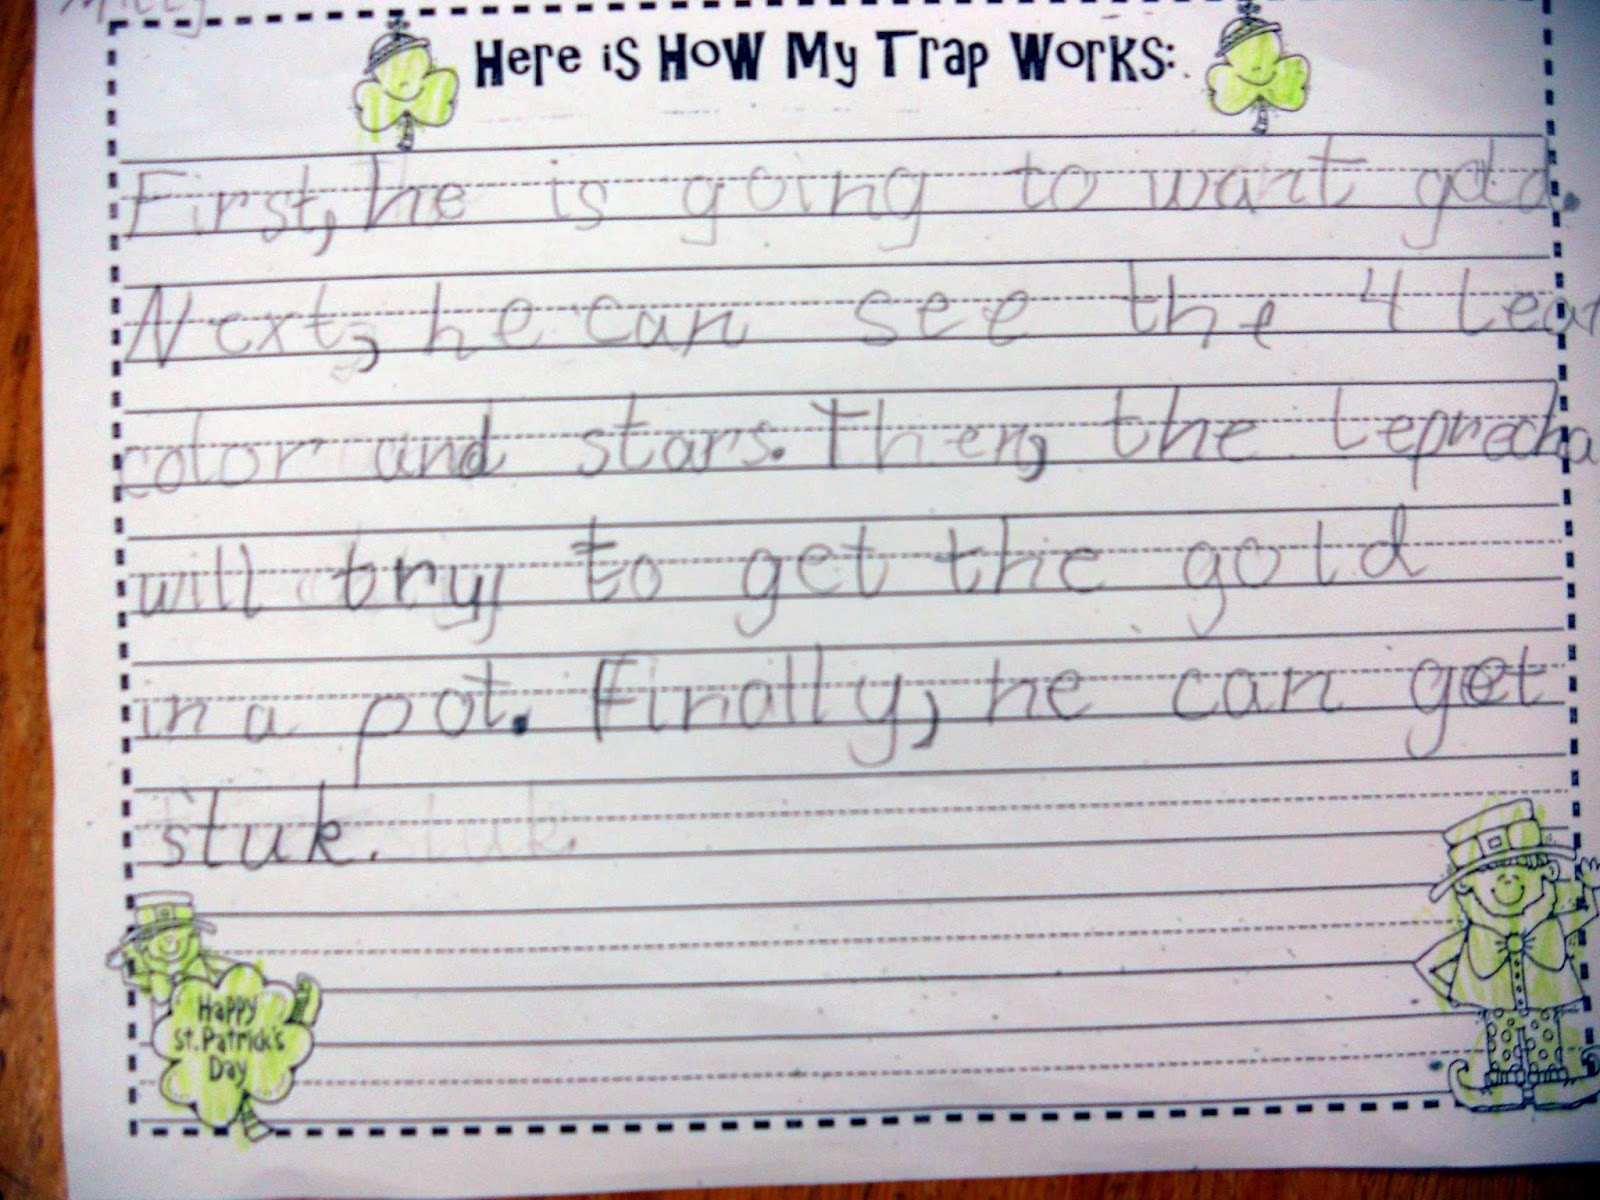 Here is How My Trap Works:
First, he is going to want gold.
Next, he can see the 4 leaf
color and stars. Then, the leprecha
will try to get the gold
in a pot. Finally, he can get
stuk.
Happy
St. Patrick's
Day